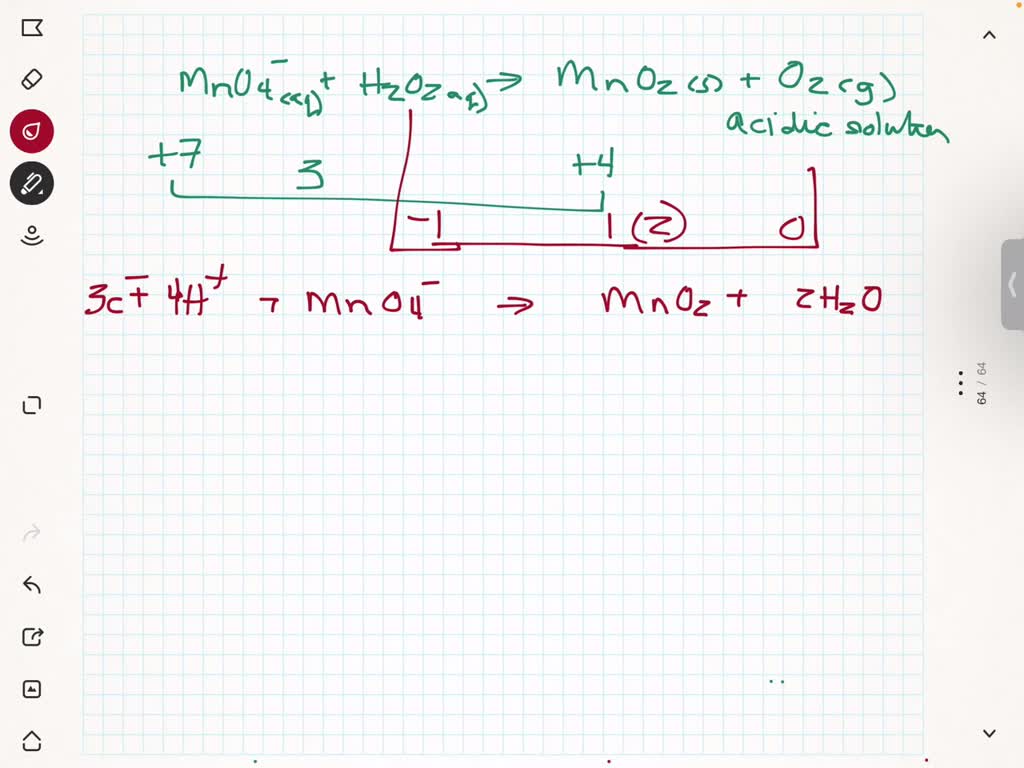 MnO4⁻(aq) + H2O2 aq) → MnO2 (s) + O2 (g)
acidic solution
+7 3 +4
-1 1 (2) 0
3e⁻ + 4H⁺ + MnO4⁻ → MnO2 + 2H2O
64 / 64